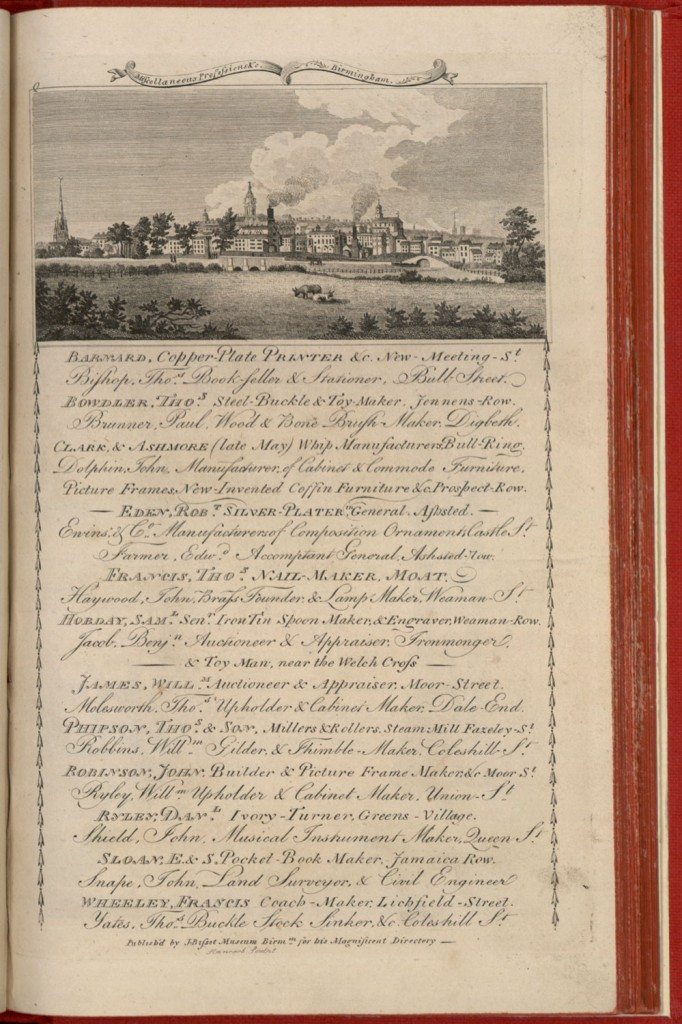 Miscellaneous Professions &c. Birmingham.
BARNARD, Copper-Plate PRINTER &c. New-Meeting-St
Bishop, Thos. Book-seller & Stationer, Bull Street.
BOWDLER, THOS. Steel-Buckle & Toy-Maker, Jennens-Row.
Brunner, Paul, Wood & Bone Brush-Maker, Digbeth.
CLARK, & ASHMORE (late May) Whip Manufacturers, Bull-Ring
Dolphin, John, Manufacturer, of Cabinet & Commode Furniture,
Picture Frames, New-Invented Coffin Furniture &c. Prospect-Row.
— EDEN, ROBT. SILVER-PLATER, in General. Ashsted. —
Ewins, & Co. Manufacturers of Composition Ornaments, Castle St.
Farmer, Edwd. Accomptant General, Ashsted-row.
FRANCIS, THOS. NAIL-MAKER, MOAT.
Haywood, John, Brass Founder, & Lamp Maker, Weaman-St
HORDAY, SAML. Senr. Iron Tin Spoon Maker, & Engraver, Weaman-Row.
Jacob, Benjn. Auctioneer & Appraiser, Ironmonger,
— & Toy Man, near the Welch Cross —
JAMES, WILLM. Auctioneer & Appraiser, Moor-Street.
Molesworth, Thos. Upholder & Cabinet Maker, Dale-End.
PHIPSON, THOS. & SON, Millers & Rollers, Steam Mill Fazeley-St.
Robbins, Willm. Gilder, & Thimble-Maker, Coleshill-St
ROBINSON, JOHN, Builder & Picture Frame Maker, &c. Moor St.
Ryley, Willm. Upholder & Cabinet Maker, Union-St.
RYLEY, DANL. Ivory-Turner, Greens-Village.
Shield, John, Musical Instrument Maker, Queen-St.
SLOAN, E & S, Pocket-Book Maker, Jamaica Row.
Snape, John, Land Surveyor, & Civil Engineer
WHEELEY, FRANCIS Coach-Maker, Lichfield-Street.
Yates, Thos. Buckle Stock Sinker, &c. Coleshill St.
Publish'd by J. Bisset Museum Birmm. for his Magnificent Directory —
Hancock Sculpt